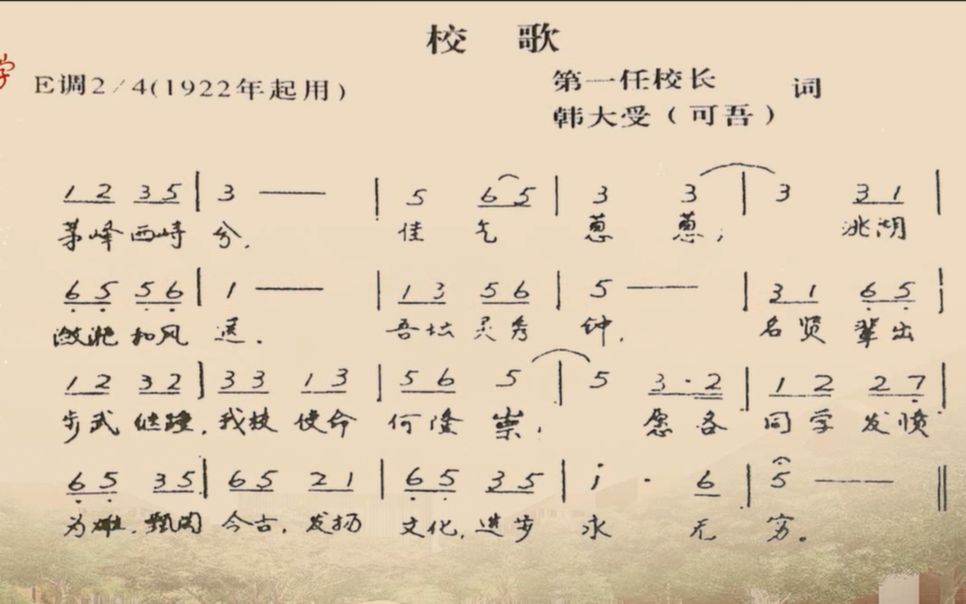 校 歌
学
E调2/4(1922年起用)
第一任校长
韩大受(可吾)
词
1 2 3 5 | 3 — | 5 6 5 | 3 3 | 3 3 1 |
茅峰西峙兮, 佳气葱葱; 洮湖
6 5 5 6 | 1 — | 1 3 5 6 | 5 — | 3 1 6 5 |
潋滟和风送. 吾坛灵秀钟, 名贤辈出
1 2 3 2 | 3 3 1 3 | 5 6 5 | 5 3·2 | 1 2 2 7 |
步武继踵,我校使命何隆崇; 愿各同学发愤
6 5 3 5 | 6 5 2 1 | 6 5 3 5 | i · 6 | 5 — ‖
为雄,甄陶今古,发扬文化,进步永无穷。